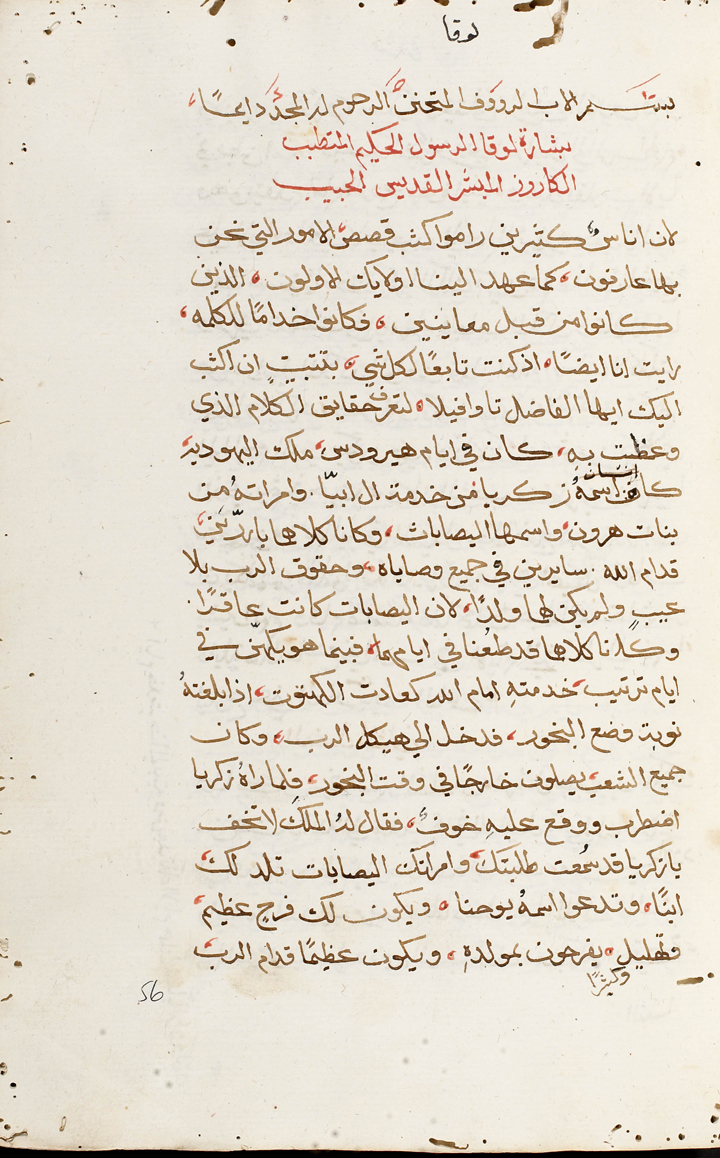 لوقا
بسم الاب الرووف المتحنن الرحوم له المجد دايمًا
بشارة لوقا الرسول الحكيم المتطبب
الكاروز المبشر القديس الحبيب
لان اناسٌ كثيرين راموا كتب قصص الامور التي نحن
بها عارفون، كما عهد الينا اولايك الاولون، الذين
كانوا من قبل معاينين، فكانوا خدامًا للكلمه،
رايت انا ايضًا، اذ كنت تابعًا لكل شي، بتثبيتٍ ان اكتب
اليك ايها الفاضل تاوافيلا، لتعرف حقايق الكلام الذي
وعظت بهِ، كان في ايام هيرودس، ملك اليهودية
كاهن اسمهُ زكريا من خدمت ال ابيّا. وامراتهُ من
بنات هرون، واسمها اليصابات، وكانا كلاهما بارّين،
قدام الله. سايرين في جميع وصاياه، وحقوق الرب بلا
عيب ولم يكن لهما ولدًا، لان اليصابات كانت عاقرًا.
وكانا كلاهما قد طعنا في ايامهما، فبينما هو يكهن في
ايام ترتيب، خدمتهِ امام الله كعادت الكهنوت، اذا بلغتهُ
نوبة وضع البخور، فدخل الي هيكل الرب، وكان
جميع الشعب يصلون خارجًا في وقت البخور، فلما راهُ زكريا
اضطرب ووقع عليهِ خوفٌ، فقال لهُ الملك لا تخف
يا زكريا قد سُمعت طلبتك، وامراتك اليصابات تلد لك
ابنًا، وتدعوا اسمهُ يوحنا، ويكون لك فرحٍ عظيم،
وتهليلٍ، يفرحون بمولدهِ، ويكون عظيمًا قدام الرب،
وكثيرًا
56